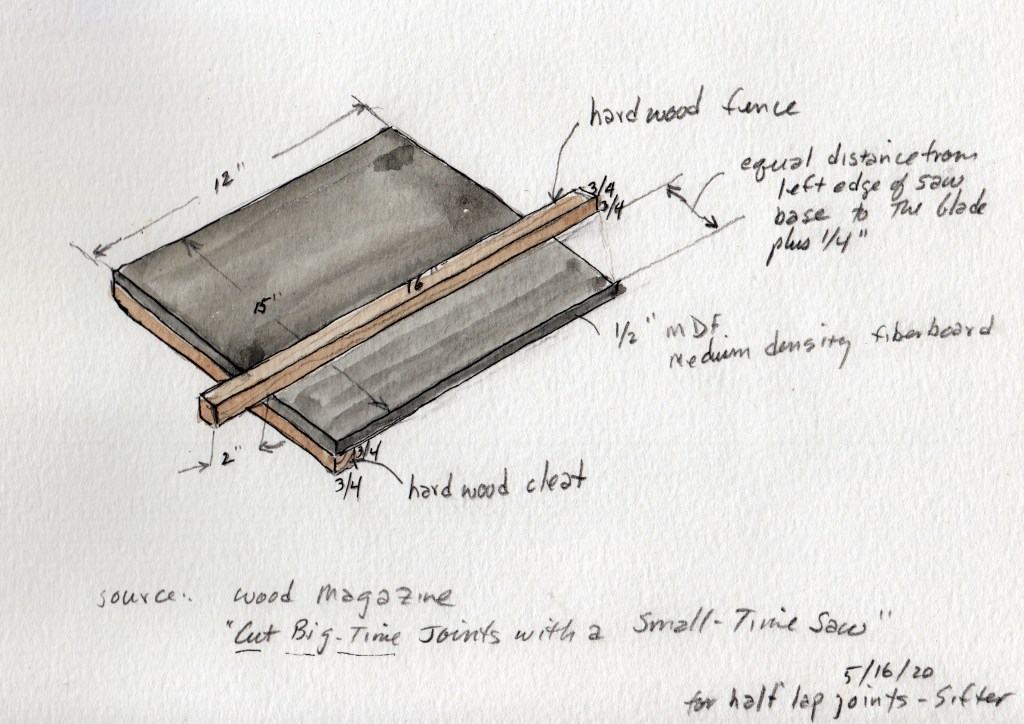 hardwood fence
12"
3/4
3/4
equal distance from
left edge of saw
base to the blade
plus 1/4"
16"
15"
1/2" MDF
medium density fiberboard
2"
3/4
3/4
hardwood cleat
source: Wood Magazine
"Cut Big-Time Joints with a Small-Time Saw"
5/16/20
for half lap joints - Sifter